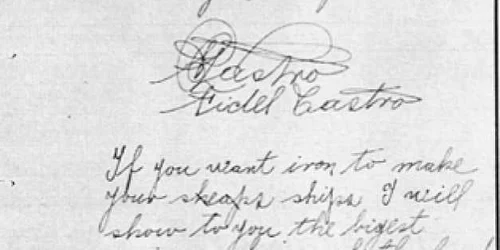 Castro
Fidel Castro
If you want iron to make
your sheaps ships I will
show to you the bigest